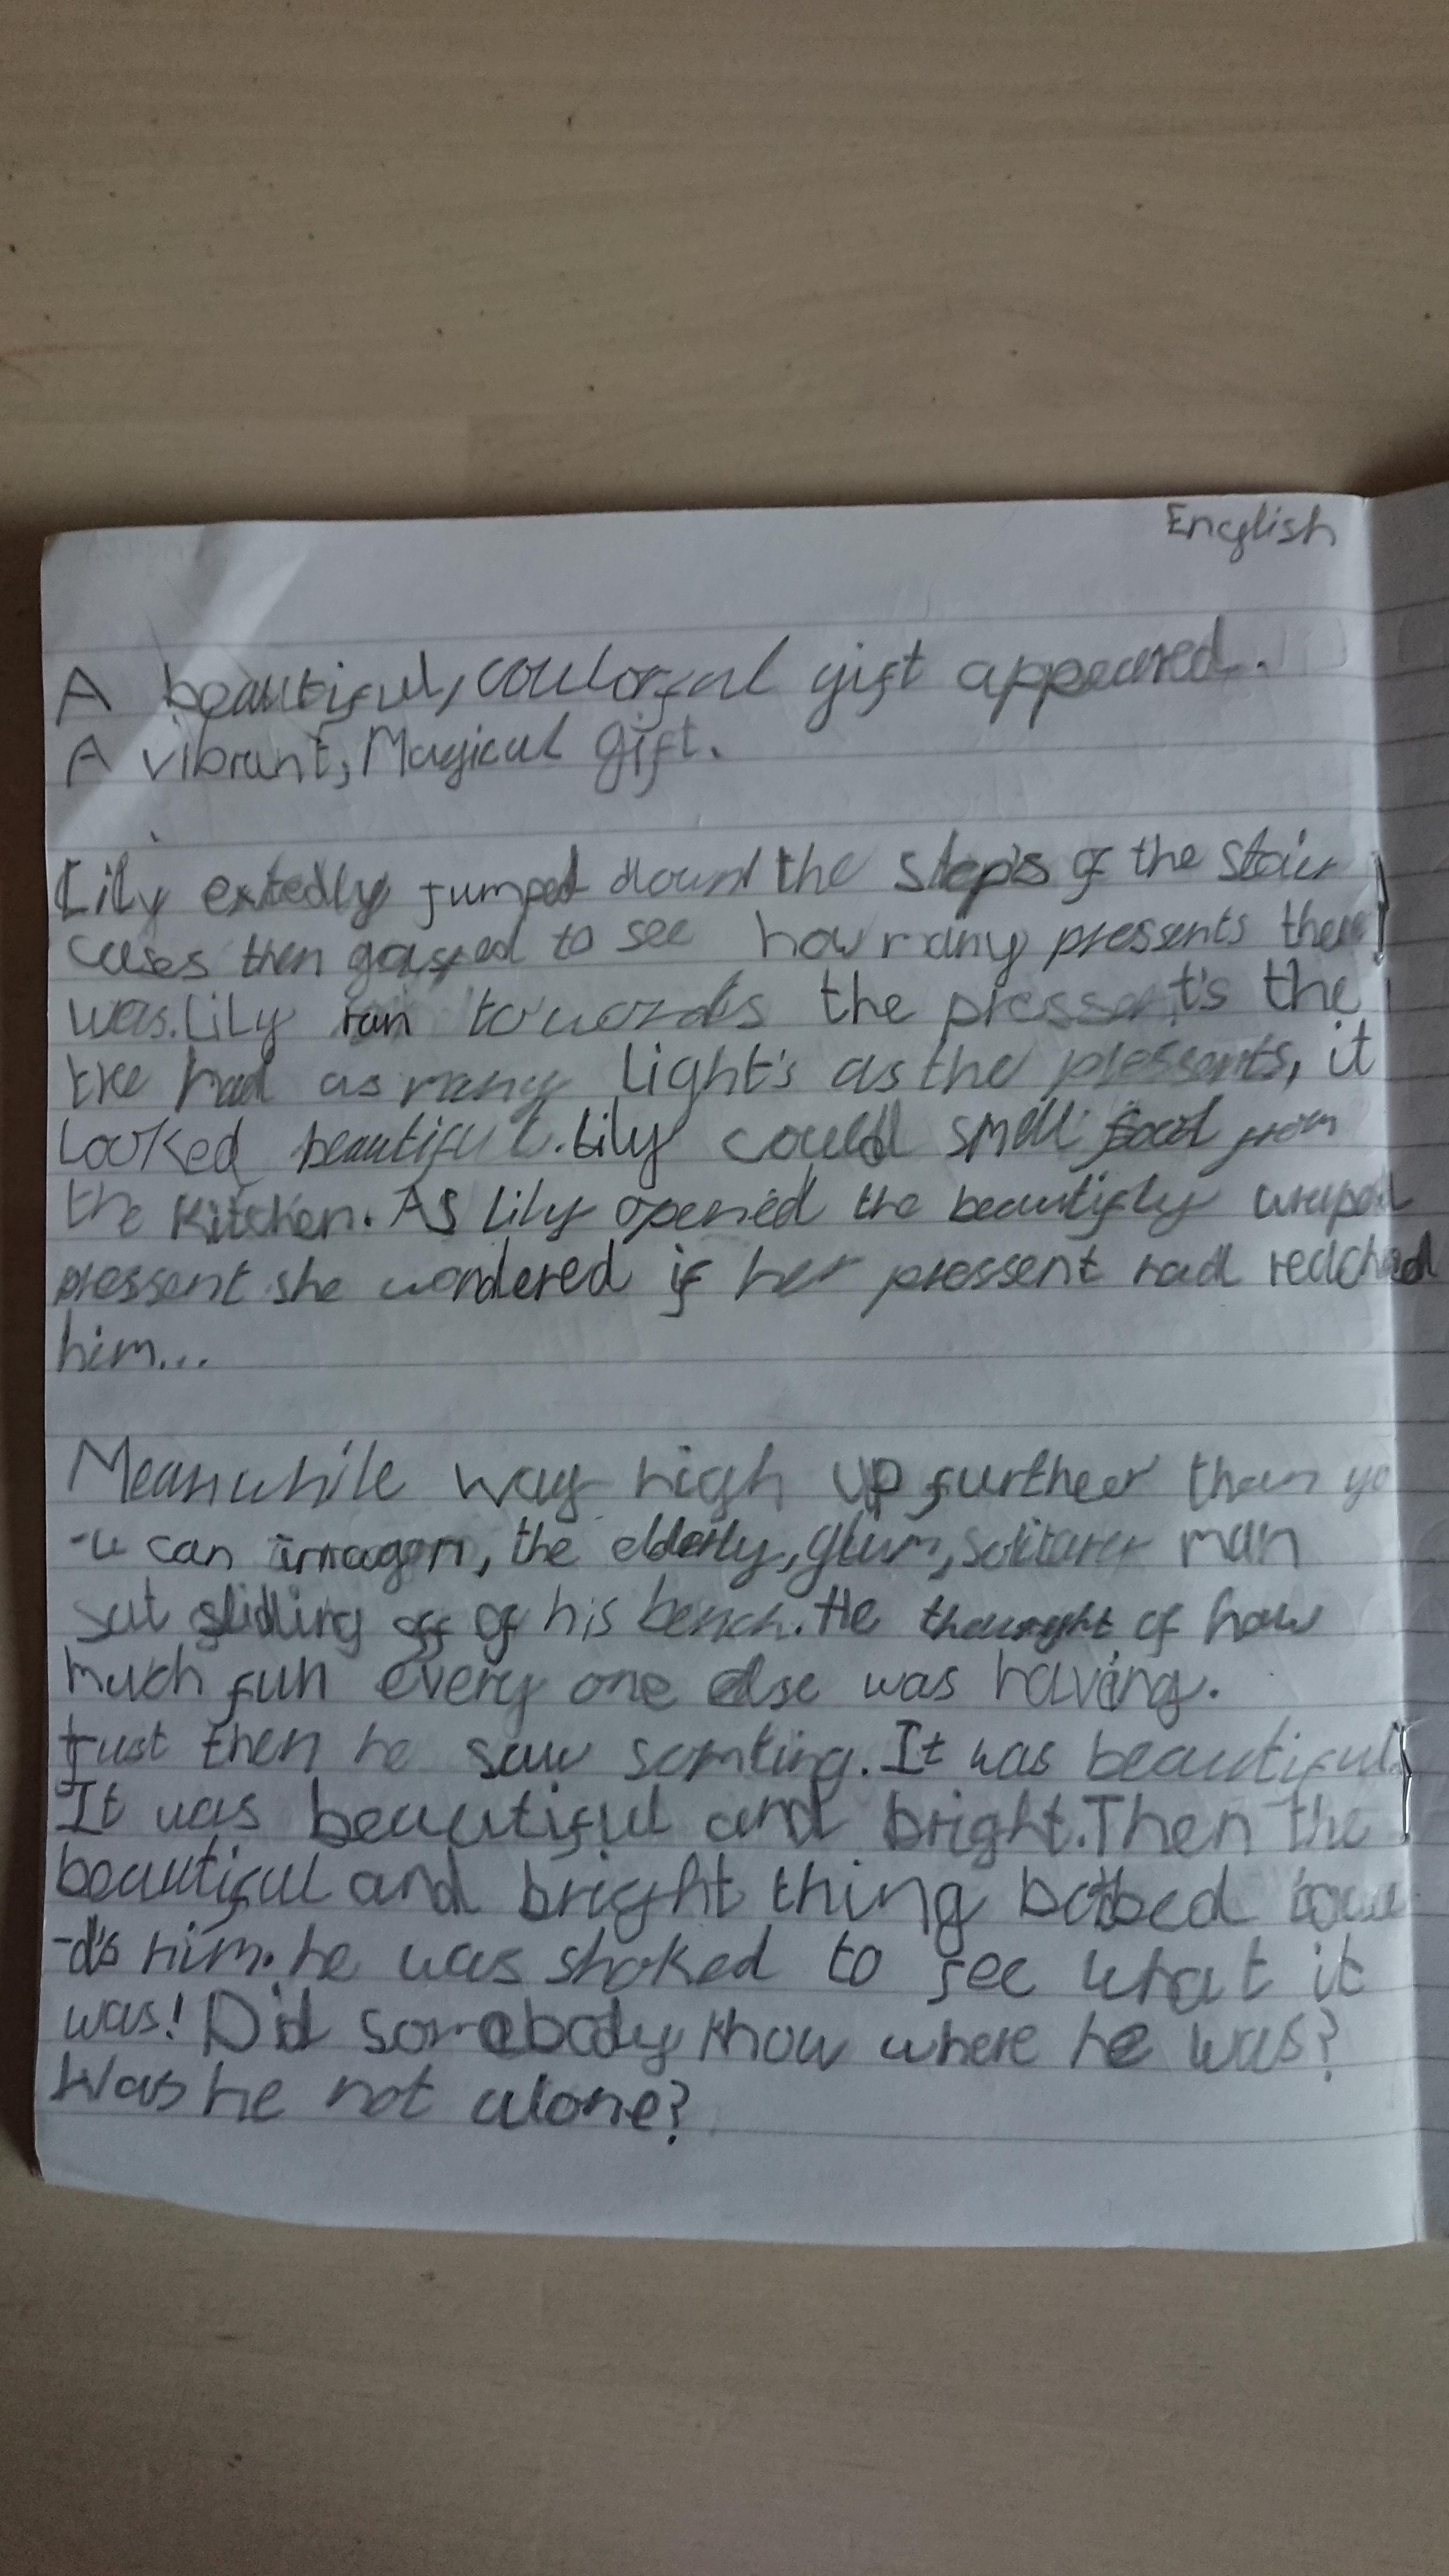 English
A beautiful, coulorful gift appeared.
A vibrant, Magical gift.
Lily extedly jumped down the step's of the stair
cases then gasped to see how many pressents there
was. Lily ran towords the pressent's the
tree had as many light's as the pressents, it
looked beautiful. Lily could smell food from
the kitchen. As Lily opened the beautifly wraped
pressent she wondered if her pressent had reached
him...
Meanwhile way high up further than yo
-u can imagen, the elderly, glum, solitarer man
sat slidling off of his bench. He thought of how
much fun every one else was having.
Just then he saw somting. It was beautiful.
It was beautiful and bright. Then the
beautiful and bright thing botbed towa
-d's him. he was shoked to see what it
was! Did somebody know where he was?
Was he not alone?